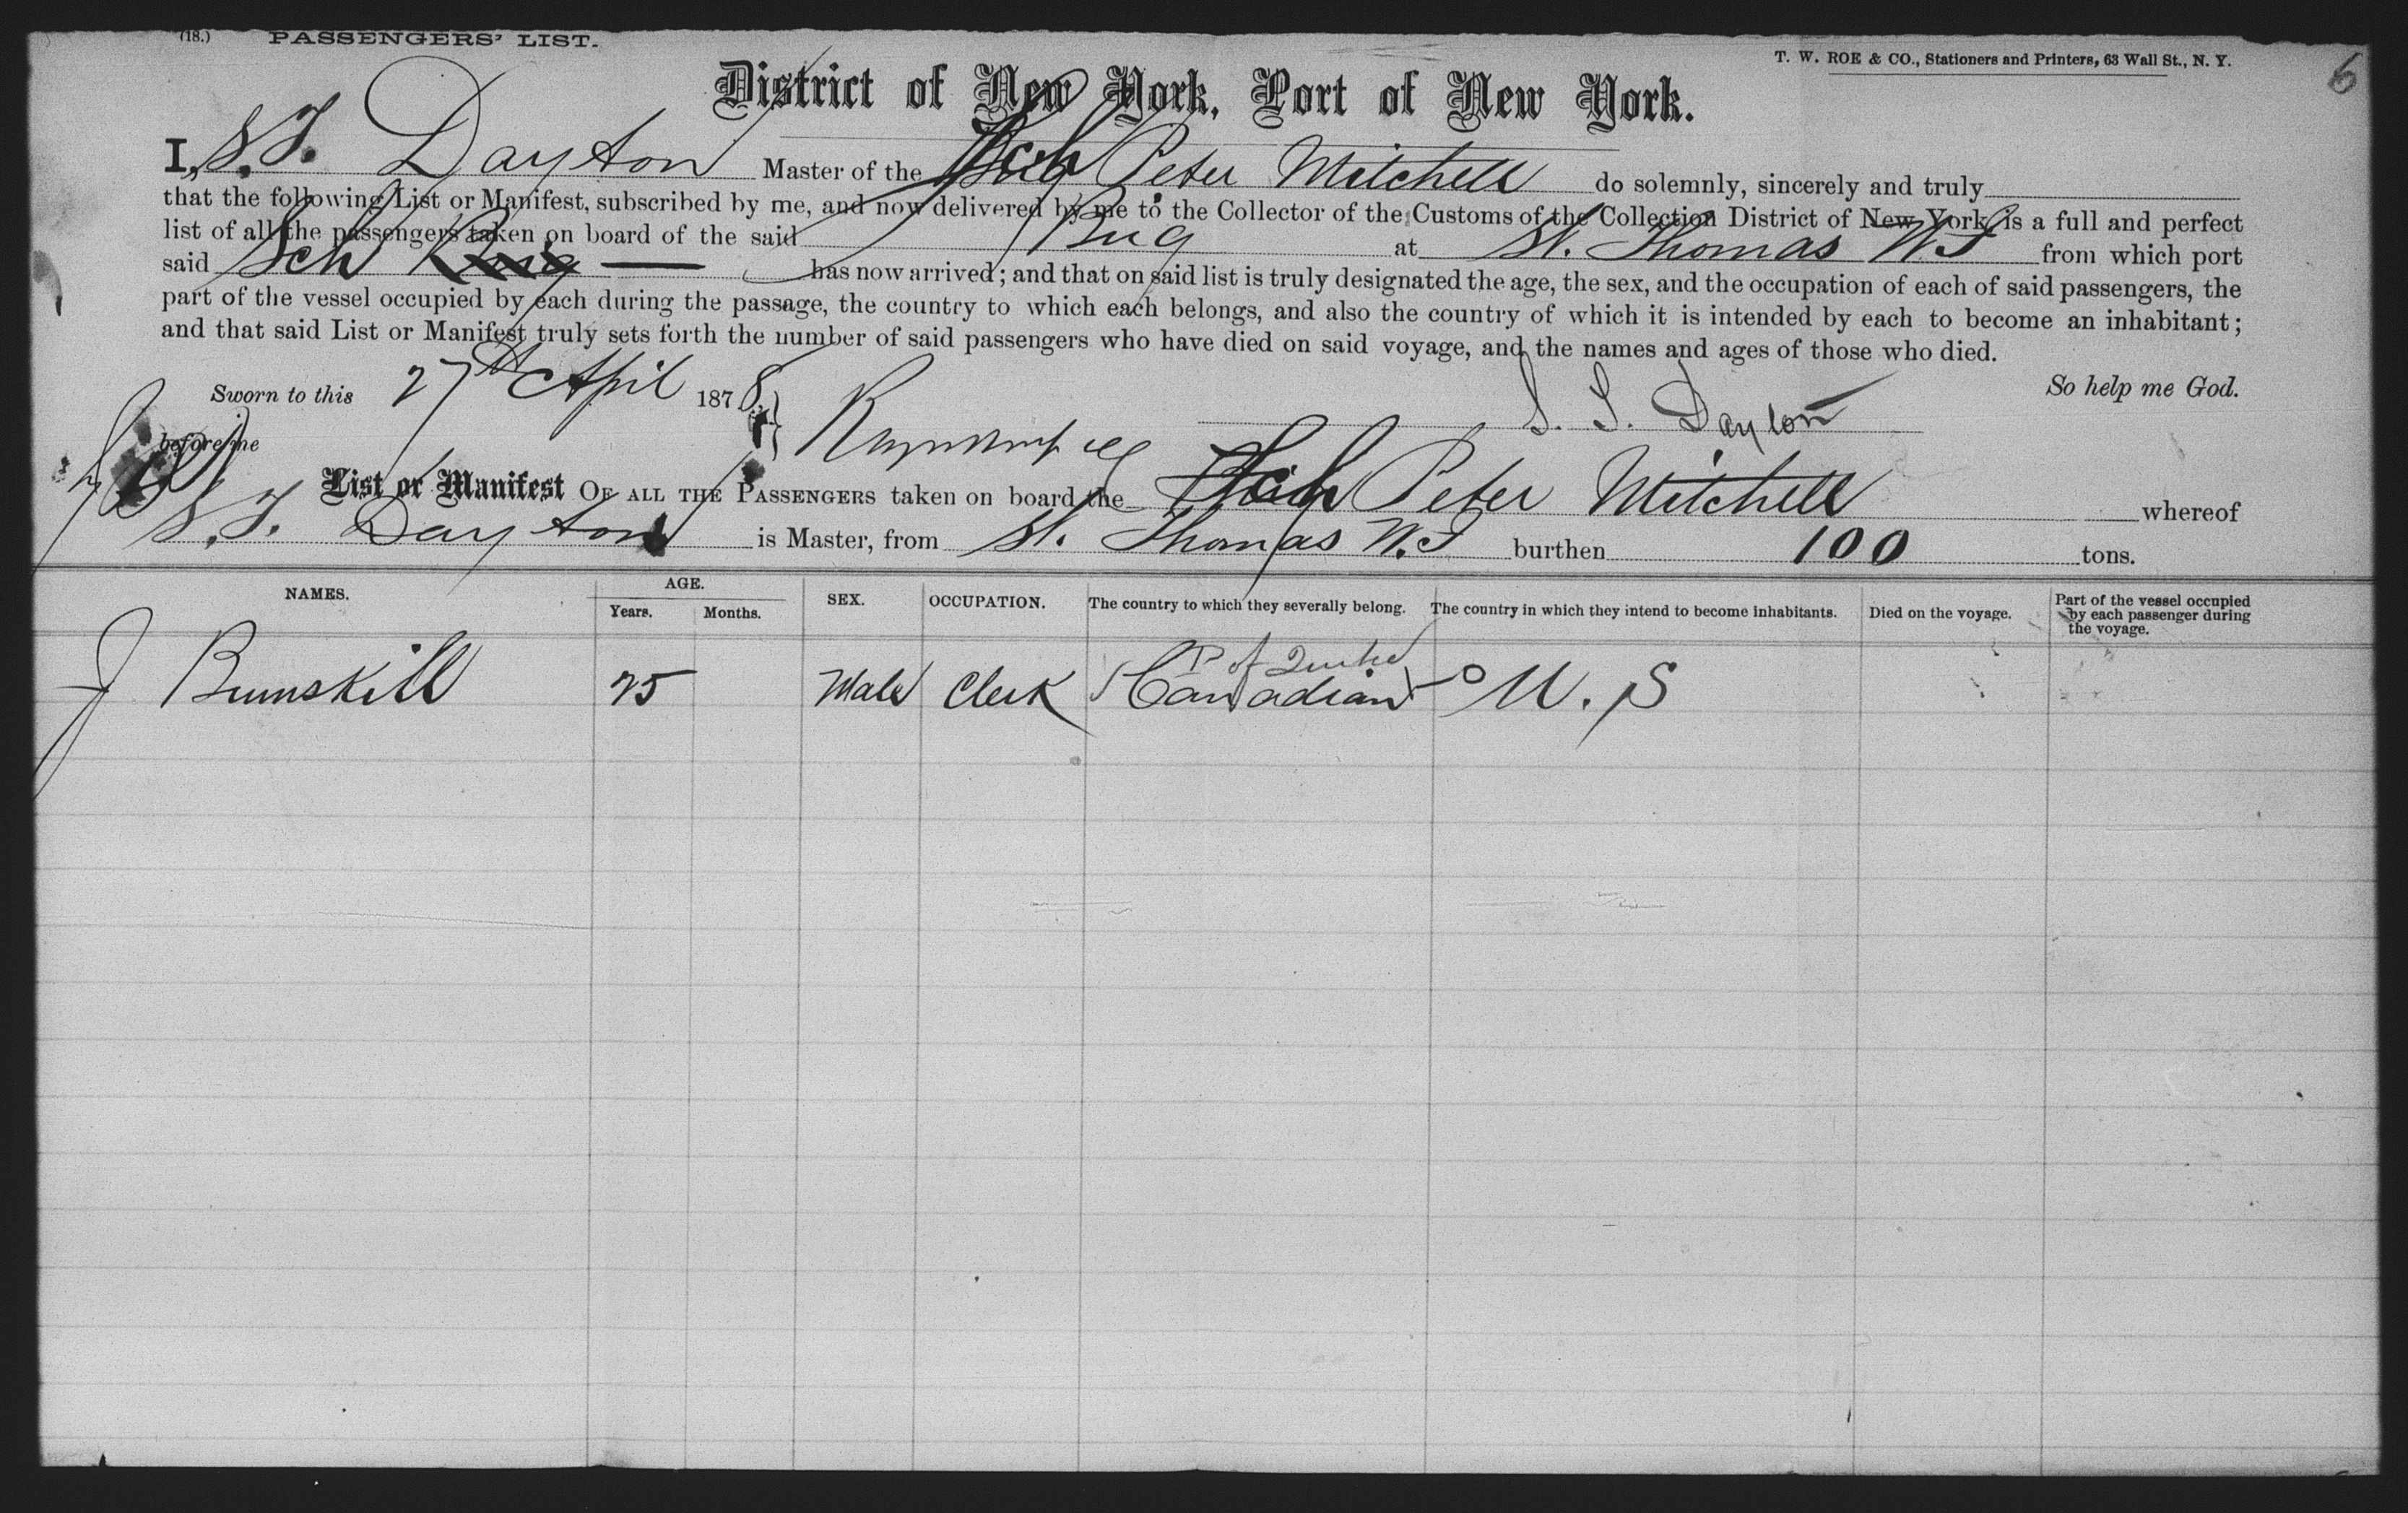 (18.) PASSENGERS' LIST.
T. W. ROE & CO., Stationers and Printers, 63 Wall St., N. Y.
6
District of New York, Port of New York.
I, S. T. Dayton Master of the Sch Peter Mitchell do solemnly, sincerely and truly
that the following List or Manifest, subscribed by me, and now delivered by me to the Collector of the Customs of the Collection District of New York is a full and perfect
list of all the passengers taken on board of the said Brig at St. Thomas W.I from which port
said Sch Brig has now arrived; and that on said list is truly designated the age, the sex, and the occupation of each of said passengers, the
part of the vessel occupied by each during the passage, the country to which each belongs, and also the country of which it is intended by each to become an inhabitant;
and that said List or Manifest truly sets forth the number of said passengers who have died on said voyage, and the names and ages of those who died.
So help me God.
Sworn to this 27th April 1878.
S. T. Dayton
before me
List or Manifest OF ALL THE PASSENGERS taken on board the Sch Peter Mitchell whereof
S. T. Dayton is Master, from St. Thomas W.I burthen 100 tons.
NAMES. AGE. Years. Months. SEX. OCCUPATION. The country to which they severally belong. The country in which they intend to become inhabitants. Died on the voyage. Part of the vessel occupied by each passenger during the voyage.
J Brunskill 25 Male Clerk P of Quebec Canadian U. S